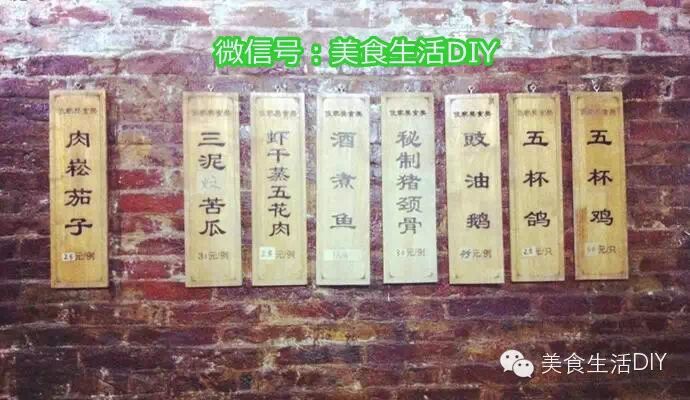 微信号：美食生活DIY
肉崧茄子
25元/例
三泥炆苦瓜
30元/例
虾干蒸五花肉
25元/例
酒煮鱼
秘制猪颈骨
30元/例
豉油鹅
45元/例
五杯鸽
25元/只
五杯鸡
元/只
美食生活DIY